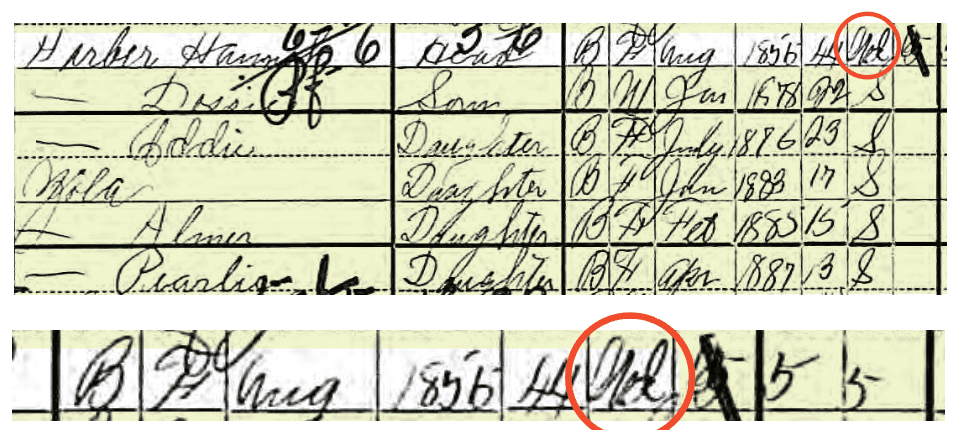 Harber Hannah 6 Head B F Aug 1856 44 Wd 5
— Dossie Son B M Jan 1878 22 S
— Eddie Daughter B F July 1876 23 S
Daughter B F Jan 1883 17 S
— Almer Daughter B F Feb 1885 15 S
— Pearlie Daughter B F Apr 1887 13 S
B F Aug 1856 44 Wd 5 5